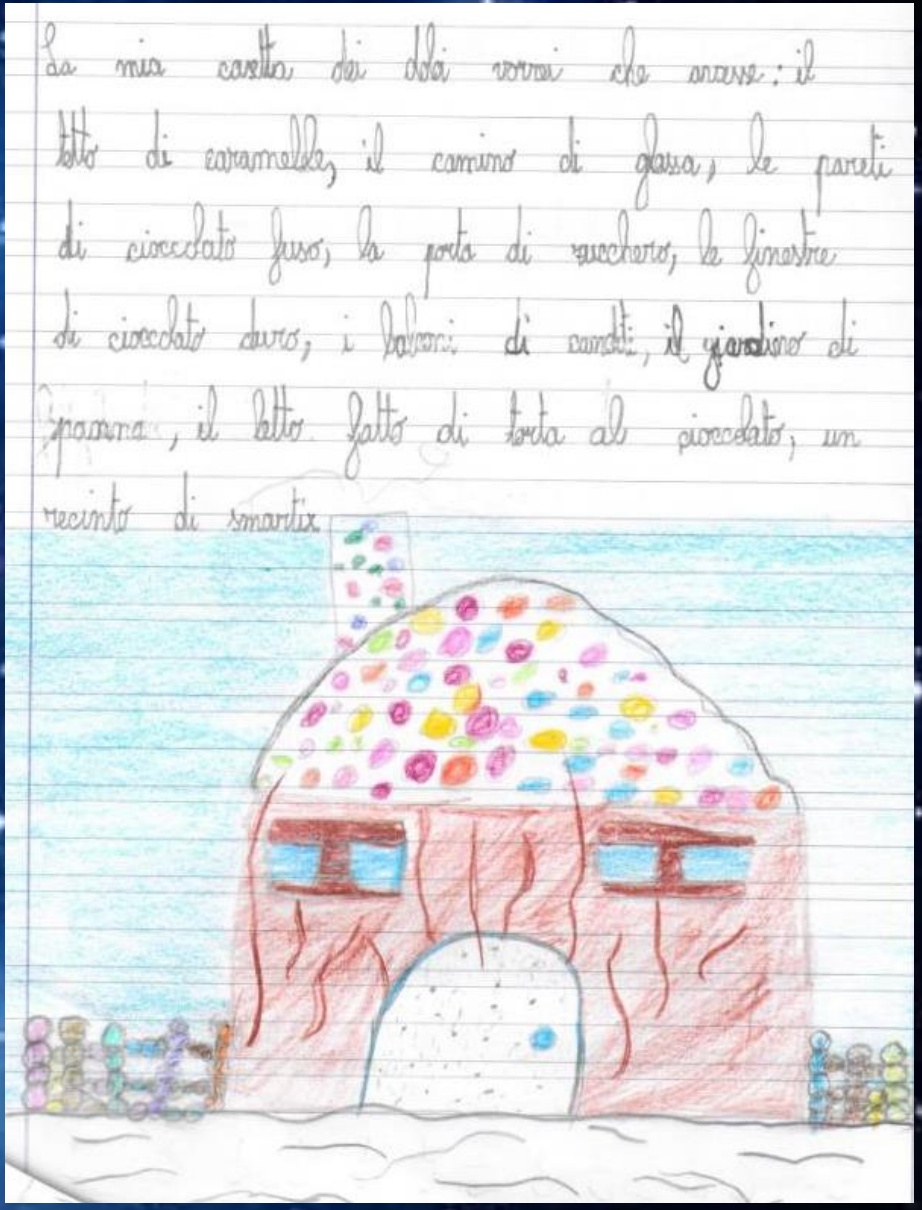 La mia casetta dei dolci vorrei che avesse: il
tetto di caramelle, il camino di glassa, le pareti
di cioccolato fuso, la porta di zucchero, le finestre
di cioccolato duro, i balconi di canditi, il giardino di
panna, il letto fatto di torta al cioccolato, un
recinto di smartix